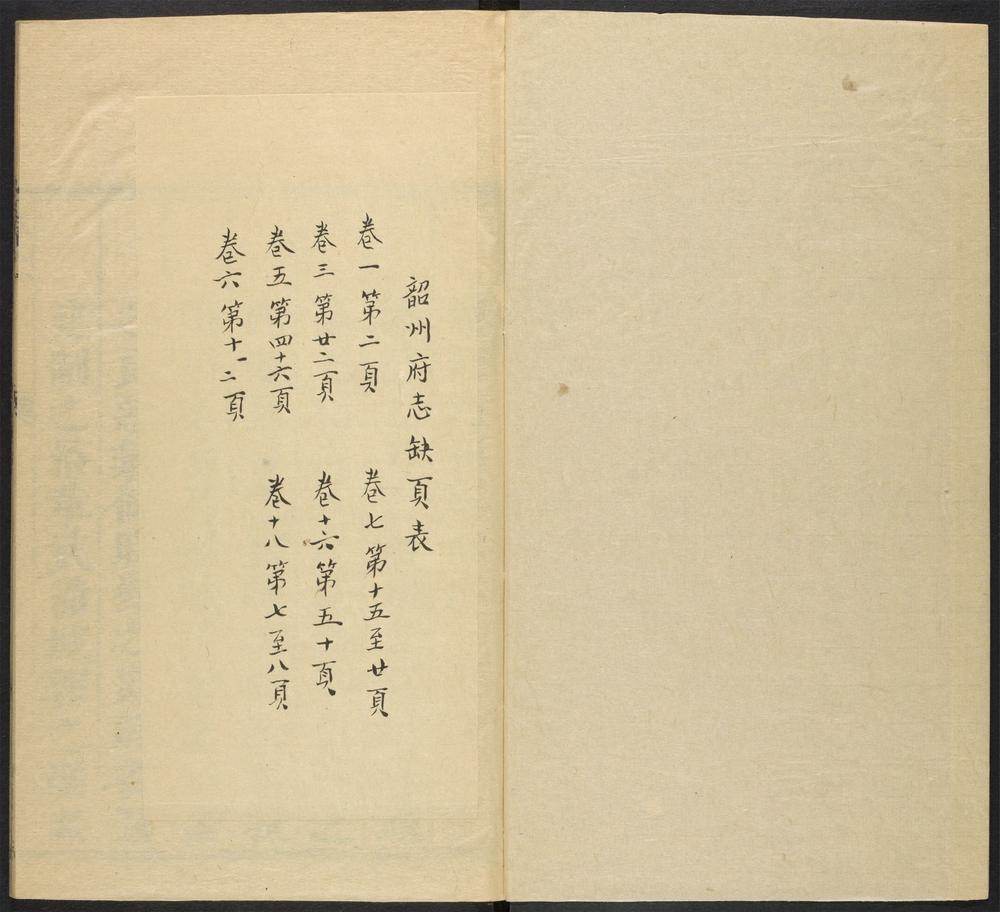 韶州府志缺頁表
卷一第二頁
卷三第廿二頁
卷五第四十六頁
卷六第十一、二頁
卷七第十五至廿頁
卷十六第五十頁
卷十八第七至八頁